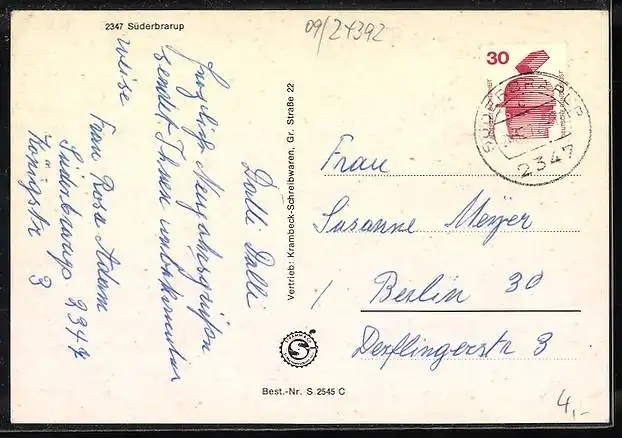 2347 Süderbrarup
09/24392
30
SÜDERBRARUP
2347
Dalli Dalli
Herzlich Neujahrsgrüßen
sendet Ihnen unbekannter
weise
Frau Rosa Adam
Süderbrarup 2347
Königstr 3
Vertrieb: Krambeck-Schreibwaren, Gr. Straße 22
Frau
Susanne Meyer
Berlin 30
Derflingerstr 3
Best.-Nr. S 2545 C
4,-